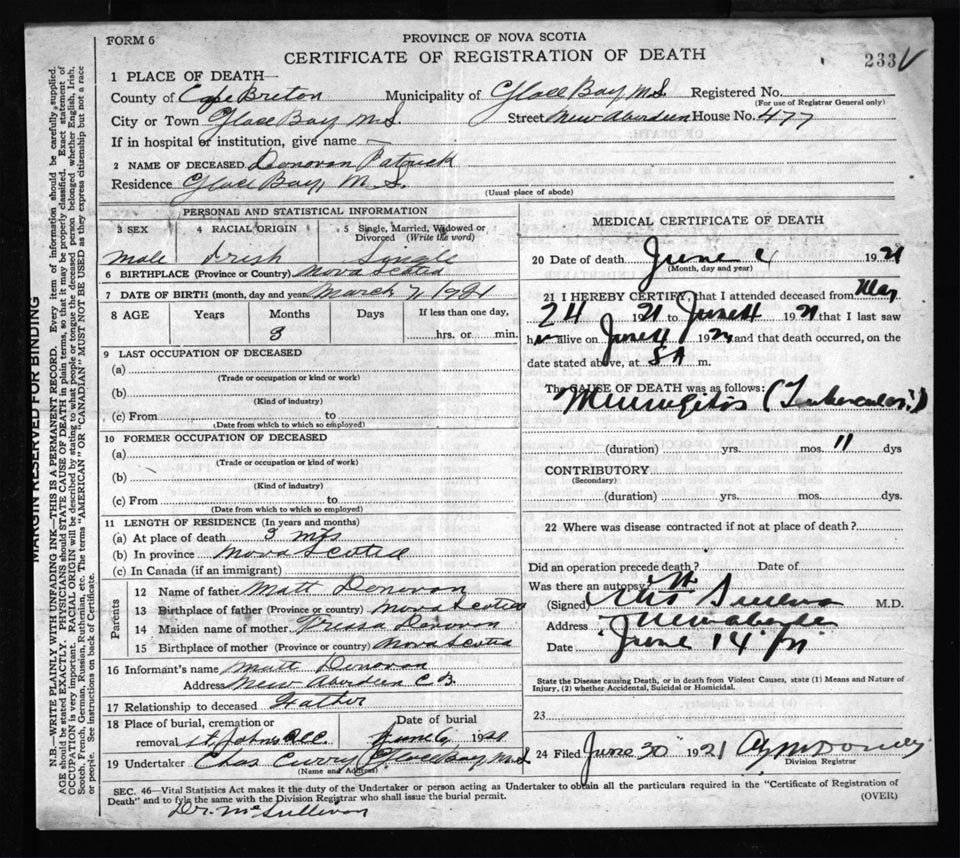 FORM 6
PROVINCE OF NOVA SCOTIA
CERTIFICATE OF REGISTRATION OF DEATH
233
1 PLACE OF DEATH
County of Cape Breton Municipality of Glace Bay N.S. Registered No.
(For use of Registrar General only)
City or Town Glace Bay N.S. Street New Aberdeen House No. 477
If in hospital or institution, give name
2 NAME OF DECEASED Donovan Patrick
Residence Glace Bay, N.S.
(Usual place of abode)
PERSONAL AND STATISTICAL INFORMATION
3 SEX 4 RACIAL ORIGIN 5 Single, Married, Widowed or Divorced (Write the word)
Male Irish Single
6 BIRTHPLACE (Province or Country) Nova Scotia
7 DATE OF BIRTH (month, day and year) March 1921
8 AGE Years Months Days If less than one day,
3 hrs. or min.
9 LAST OCCUPATION OF DECEASED
(a)
(Trade or occupation or kind or work)
(b)
(Kind of industry)
(c) From to
(Date from which to which so employed)
10 FORMER OCCUPATION OF DECEASED
(a)
(Trade or occupation or kind of work)
(b)
(Kind of industry)
(c) From to
(Date from which to which so employed)
11 LENGTH OF RESIDENCE (In years and months)
(a) At place of death 3 mts
(b) In province Nova Scotia
(c) In Canada (if an immigrant)
Parents
12 Name of father Matt Donovan
13 Birthplace of father (Province or country) Nova Scotia
14 Maiden name of mother Tressa Donovan
15 Birthplace of mother (Province or Country) Nova Scotia
16 Informant's name Matt Donovan
Address New Aberdeen C.B.
17 Relationship to deceased Father
18 Place of burial, cremation or Date of burial
removal St. Johns June 6 1921
19 Undertaker Chas Curry Glace Bay N.S.
(Name and Address)
MEDICAL CERTIFICATE OF DEATH
20 Date of death June 4 1921
(Month, day and year)
21 I HEREBY CERTIFY, that I attended deceased from May
24 1921 to June 4 1921 that I last saw
h alive on June 4 192 and that death occurred, on the
date stated above, at 5 A m.
The CAUSE OF DEATH was as follows:
Meningitis (Tubercular?)
(duration) yrs. mos. 11 dys
CONTRIBUTORY
(Secondary)
(duration) yrs. mos. dys.
22 Where was disease contracted if not at place of death?
Did an operation precede death? Date of
Was there an autopsy? No
(Signed) Sullivan M.D.
Address New Aberdeen
Date June 14
State the Disease causing Death, or in death from Violent Causes, state (1) Means and Nature of
Injury, (2) whether Accidental, Suicidal or Homicidal.
23
24 Filed June 30 1921
Division Registrar
SEC. 46—Vital Statistics Act makes it the duty of the Undertaker or person acting as Undertaker to obtain all the particulars required in the "Certificate of Registration of
Death" and to fyle the same with the Division Registrar who shall issue the burial permit.
(OVER)
Dr. McSullivan
MARGIN RESERVED FOR BINDING
N.B.—WRITE PLAINLY WITH UNFADING INK—THIS IS A PERMANENT RECORD. Every item of information should be carefully supplied.
AGE should be stated EXACTLY. PHYSICIANS should STATE CAUSE OF DEATH in plain terms, so that it may be properly classified. Exact statement of
OCCUPATION is very important. RACIAL ORIGIN will be described by stating to what people or tongue the deceased person belonged whether English, Irish,
Scotch, French, German, Russian, Ruthenian, etc. The terms "AMERICAN" OR "CANADIAN" MUST NOT BE USED as they express citizenship but not a race
or people. See instructions on back of Certificate.